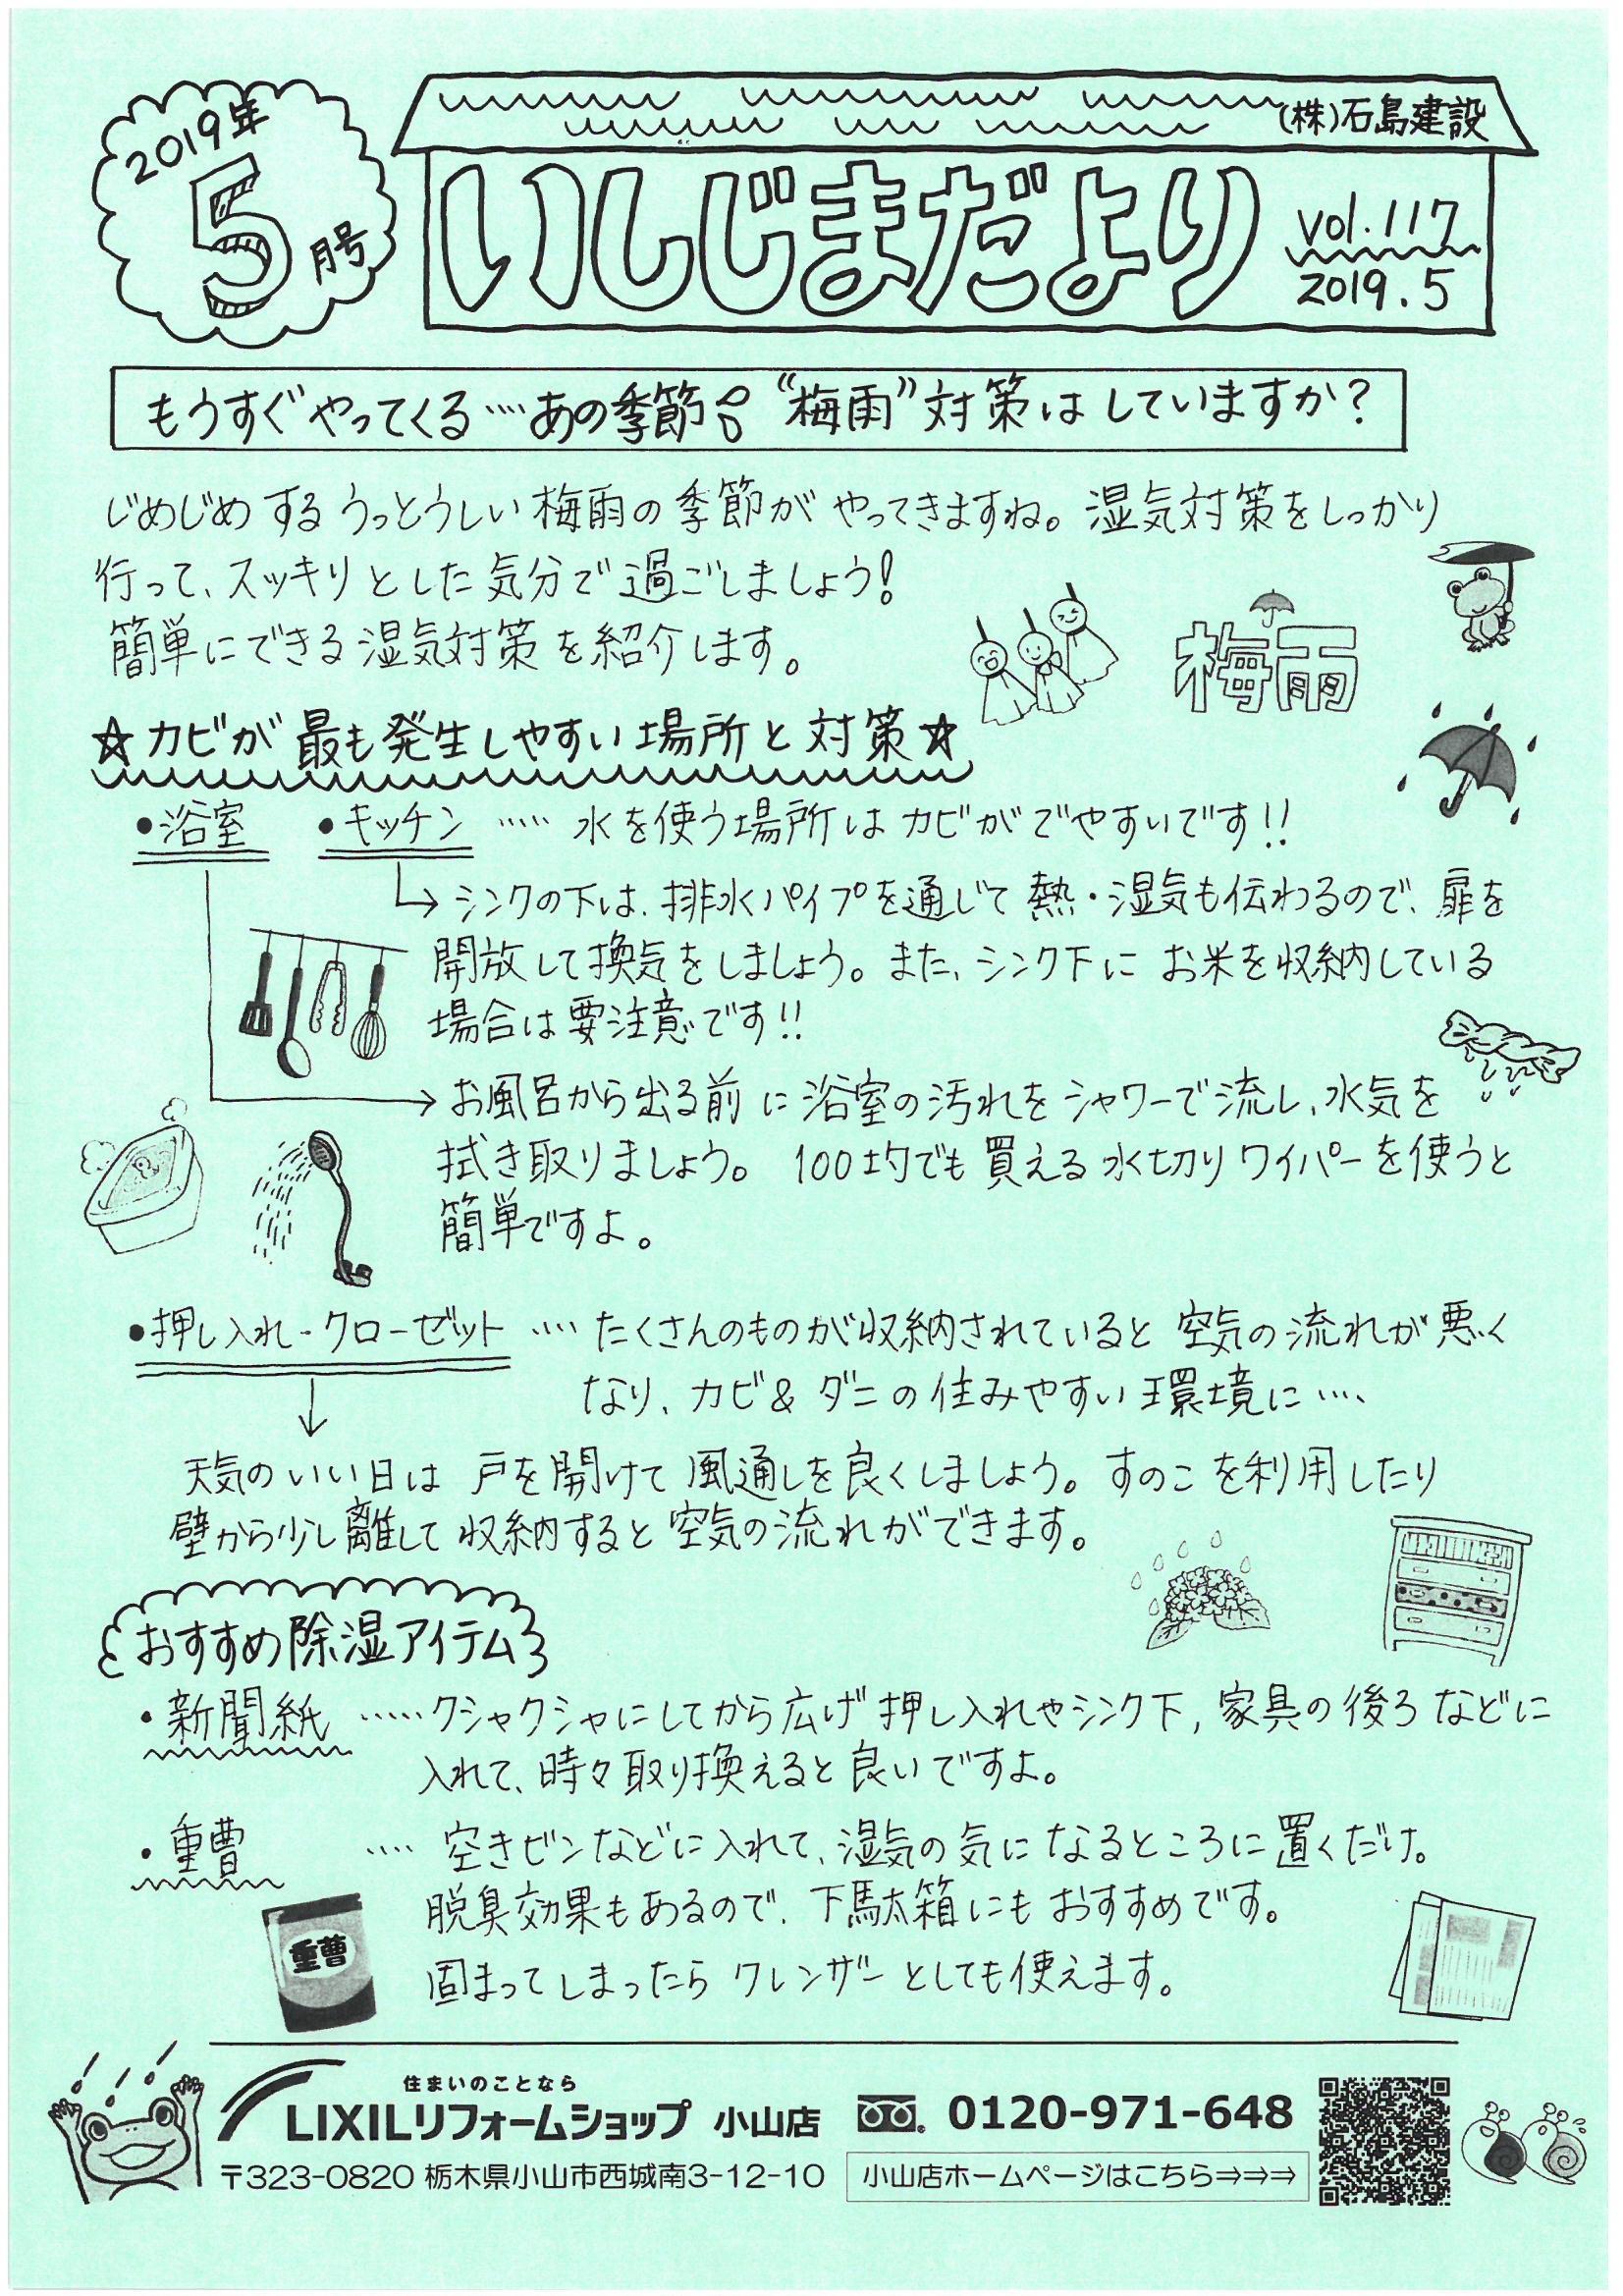 2019年
5月号
(株)石島建設
いしじまだより
vol.117
2019.5
もうすぐやってくる…あの季節 “梅雨”対策はしていますか?
じめじめするうっとうしい梅雨の季節がやってきますね。湿気対策をしっかり
行って、スッキリとした気分で過ごしましょう!
簡単にできる湿気対策を紹介します。
梅雨
☆カビが最も発生しやすい場所と対策☆
•浴室 •キッチン ‥‥ 水を使う場所はカビがでやすいです!!
→シンクの下は、排水パイプを通じて熱・湿気も伝わるので、扉を
開放して換気をしましょう。また、シンク下にお米を収納している
場合は要注意です!!
→お風呂から出る前に浴室の汚れをシャワーで流し、水気を
拭き取りましょう。100均でも買える水切りワイパーを使うと
簡単ですよ。
•押し入れ-クローゼット ‥‥たくさんのものが収納されていると空気の流れが悪く
なり、カビ&ダニの住みやすい環境に‥‥
天気のいい日は戸を開けて風通しを良くしましょう。すのこを利用したり
壁から少し離して収納すると空気の流れができます。
おすすめ除湿アイテム
・新聞紙 ‥‥‥クシャクシャにしてから広げ押し入れやシンク下,家具の後ろなどに
入れて、時々取り換えると良いですよ。
・重曹 ‥‥ 空きビンなどに入れて、湿気の気になるところに置くだけ。
脱臭効果もあるので、下駄箱にもおすすめです。
重曹
固まってしまったらクレンザーとしても使えます。
住まいのことなら
LIXILリフォームショップ 小山店 0120-971-648
〒323-0820 栃木県小山市西城南3-12-10 小山店ホームページはこちら⇒⇒⇒